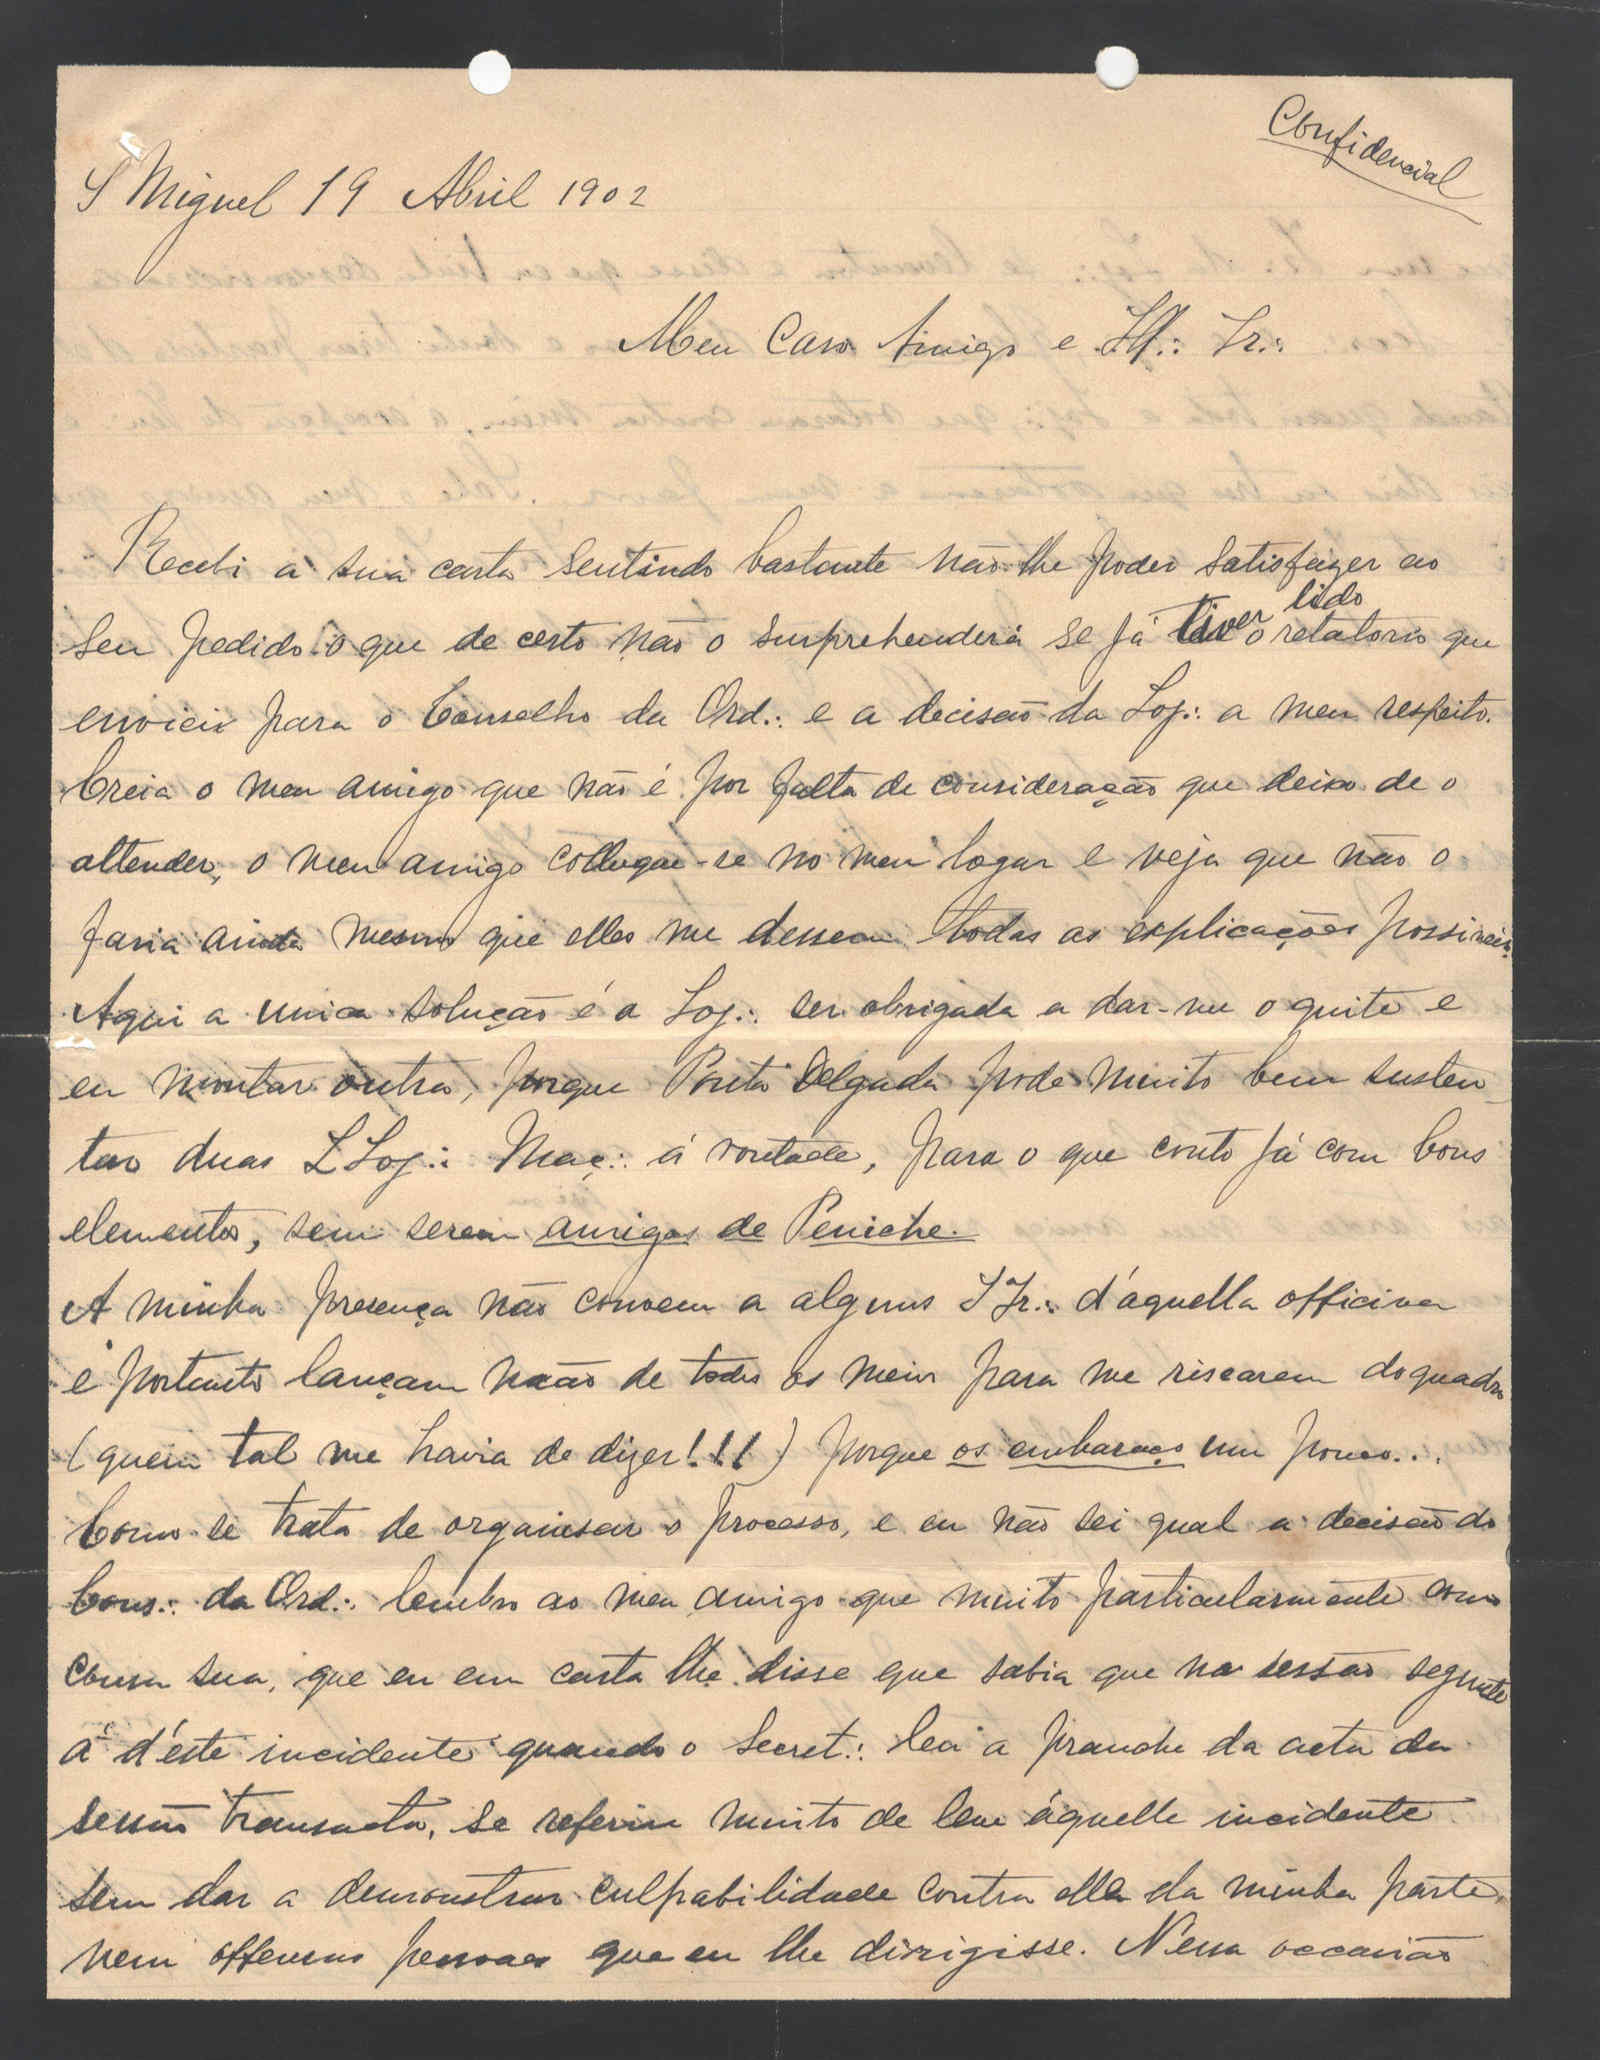 Confidencial
S Miguel 19 Abril 1902
Meu Caro Amigo e Ill∴ Ir∴
Recebi a sua carta sentindo bastante não lhe poder satisfazer ao
lido
seu pedido o que de certo não o surprehenderá se já tiver o relatorio que
enviei para o Conselho da Ord∴ e a decisão da Loj∴ a meu respeito.
Creia o meu amigo que não é por falta de consideração que deixo de o
attender, o meu amigo colloque-se no meu logar e veja que não o
faria ainda mesmo que elles me dessem todas as explicações possiveis.
Aqui a unica solução é a Loj∴ ser obrigada a dar-me o quite e
eu montar outra, porque Ponta Delgada pode muito bem susten
tar duas LLoj∴ Maç∴ á vontade, para o que conto já com bons
elementos, sem serem amigos de Peniche.
A minha presença não convem a alguns IIr∴ d'aquella officina
e portanto lançam mão de todos os meios para me riscarem do quadro
(quem tal me havia de dizer!!!) porque os embaraço um pouco...
Como se trata de organisar o processo, e eu não sei qual a decisão do
Cons∴ da Ord∴ lembro ao meu amigo que muito particularmente como
cousa sua, que eu em carta lhe disse que sabia que na sessão seguinte
á d'este incidente quando o Secret∴ leu a pranche da acta da
sessão transacta, se referiu muito de leve áquelle incidente
sem dar a demonstrar culpabilidade contra ella da minha parte,
nem offensas pessoaes que eu lhe dirigisse. Nessa occasião